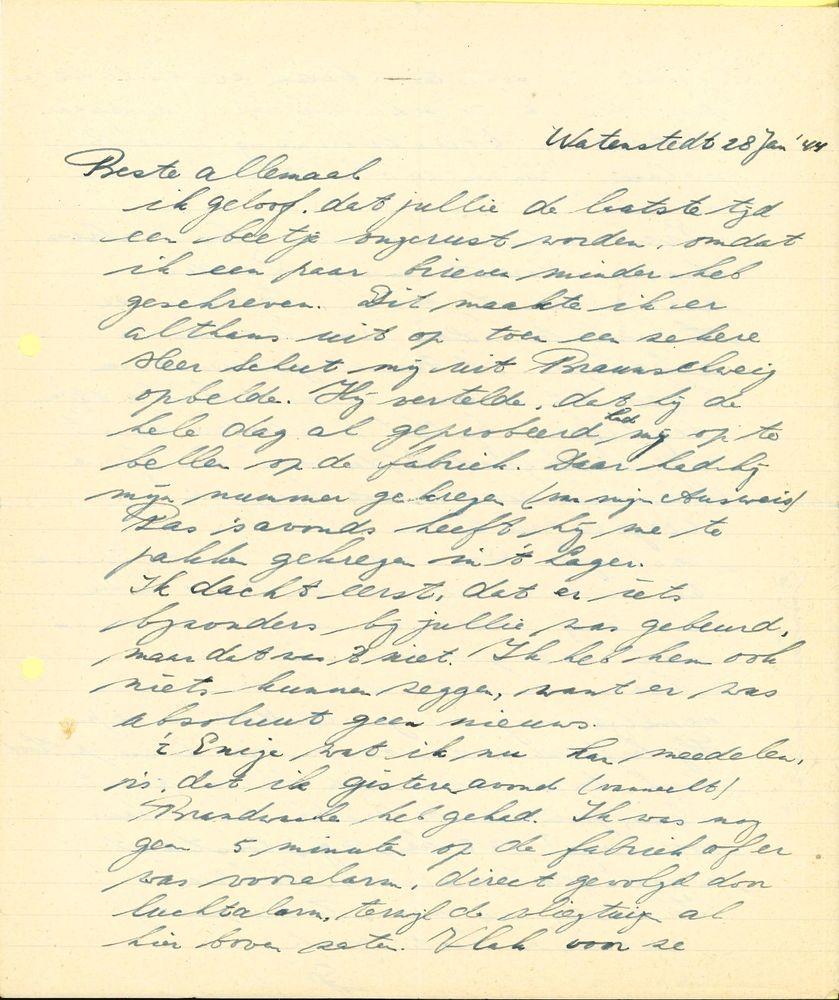 Watenstedt 28 Jan '44
Beste allemaal
ik geloof, dat jullie de laatste tijd
een beetje ongerust worden, omdat
ik een paar brieven minder heb
geschreven. Dit maakte ik er
althans uit op toen een zekere
Heer Schut mij uit Braunschweig
opbelde. Hij vertelde, dat hij de
hele dag al geprobeerd had mij op te
bellen op de fabriek. Daar had hij
mijn nummer gekregen (van mijn Ausweis)
Pas 's avonds heeft hij me te
pakken gekregen in 't Lager.
Ik dacht eerst, dat er iets
bijzonders bij jullie was gebeurd,
maar dat was 't niet. Ik heb hem ook
niets kunnen zeggen, want er was
absoluut geen nieuws.
't Enige wat ik nu kan meedelen,
is, dat ik gisterenavond
Brandwache heb gehad. Ik was nog
geen 5 minuten op de fabriek of er
was vooralarm, direct gevolgd door
luchtalarm, terwijl de vliegtuigen al
hier boven zaten. Vlak voor ze